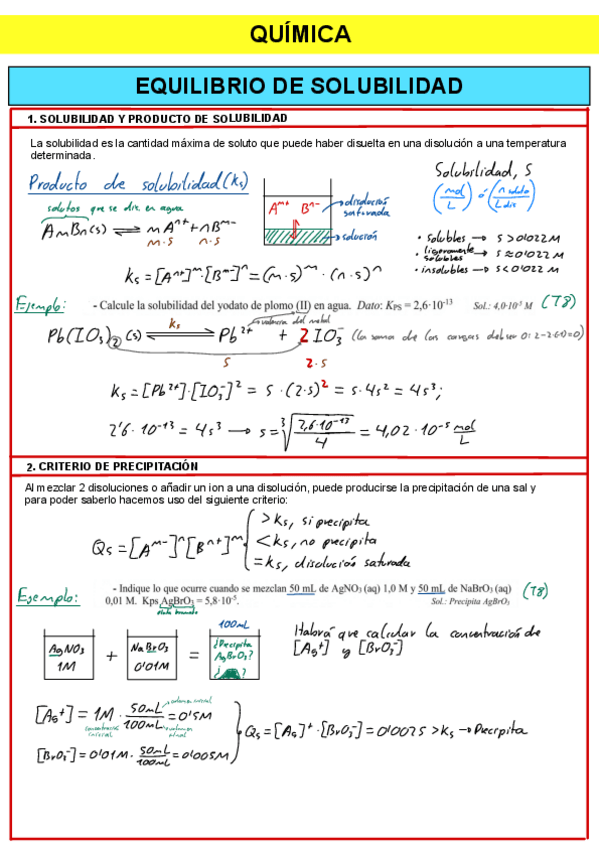 QUÍMICA
EQUILIBRIO DE SOLUBILIDAD
1. SOLUBILIDAD Y PRODUCTO DE SOLUBILIDAD
La solubilidad es la cantidad máxima de soluto que puede haber disuelta en una disolución a una temperatura
determinada.
Producto de solubilidad (ks)
solutos que se dis. en agua
AmBn(s) ⇌ mAⁿ⁺ + nBᵐ⁻
m·s n·s
Aᵐ⁺ Bⁿ⁻
disolución
saturada
solución
Solubilidad, S
(mol/L) ó (n soluto/L dis)
• solubles → S > 0'022 M
• ligeramente
solubles → S ≈ 0'022 M
• insolubles → S < 0'022 M
ks = [Aⁿ⁺]ᵐ·[Bᵐ⁻]ⁿ = (m·s)ᵐ · (n·s)ⁿ
Ejemplo: - Calcule la solubilidad del yodato de plomo (II) en agua. Dato: KPS = 2,6·10⁻¹³ Sol.: 4,0·10⁻⁵ M (T8)
valencia del metal
Pb(IO₃)₂ (s) ⇌ Pb²⁺ + 2 IO₃⁻ (la suma de las cargas debe ser 0: 2-2·(1)=0)
ks
s 2·s
ks = [Pb²⁺]·[IO₃⁻]² = s · (2·s)² = s·4s² = 4s³;
2'6·10⁻¹³ = 4s³ → s = ∛(2,6·10⁻¹³/4) = 4,02·10⁻⁵ mol/L
2. CRITERIO DE PRECIPITACIÓN
Al mezclar 2 disoluciones o añadir un ion a una disolución, puede producirse la precipitación de una sal y
para poder saberlo hacemos uso del siguiente criterio:
> ks, si precipita
Qs = [Aᵐ⁻]ⁿ[Bⁿ⁺]ᵐ < ks, no precipita
= ks, disolución saturada
Ejemplo: - Indique lo que ocurre cuando se mezclan 50 mL de AgNO₃ (aq) 1,0 M y 50 mL de NaBrO₃ (aq)
0,01 M. Kps AgBrO₃ = 5,8·10⁻⁵. Sol.: Precipita AgBrO₃ (T8)
100mL
AgNO₃
1M
+
NaBrO₃
0'01M
=
¿Precipita
AgBrO₃?
Habrá que calcular la concentración de
[Ag⁺] y [BrO₃⁻]
volumen inicial
[Ag⁺] = 1M · 50mL/100mL = 0'5M
concentración
inicial
volumen
final
[BrO₃⁻] = 0'01M · 50mL/100mL = 0'005M
Qs = [Ag]⁺·[BrO₃⁻] = 0'0025 > ks → Precipita